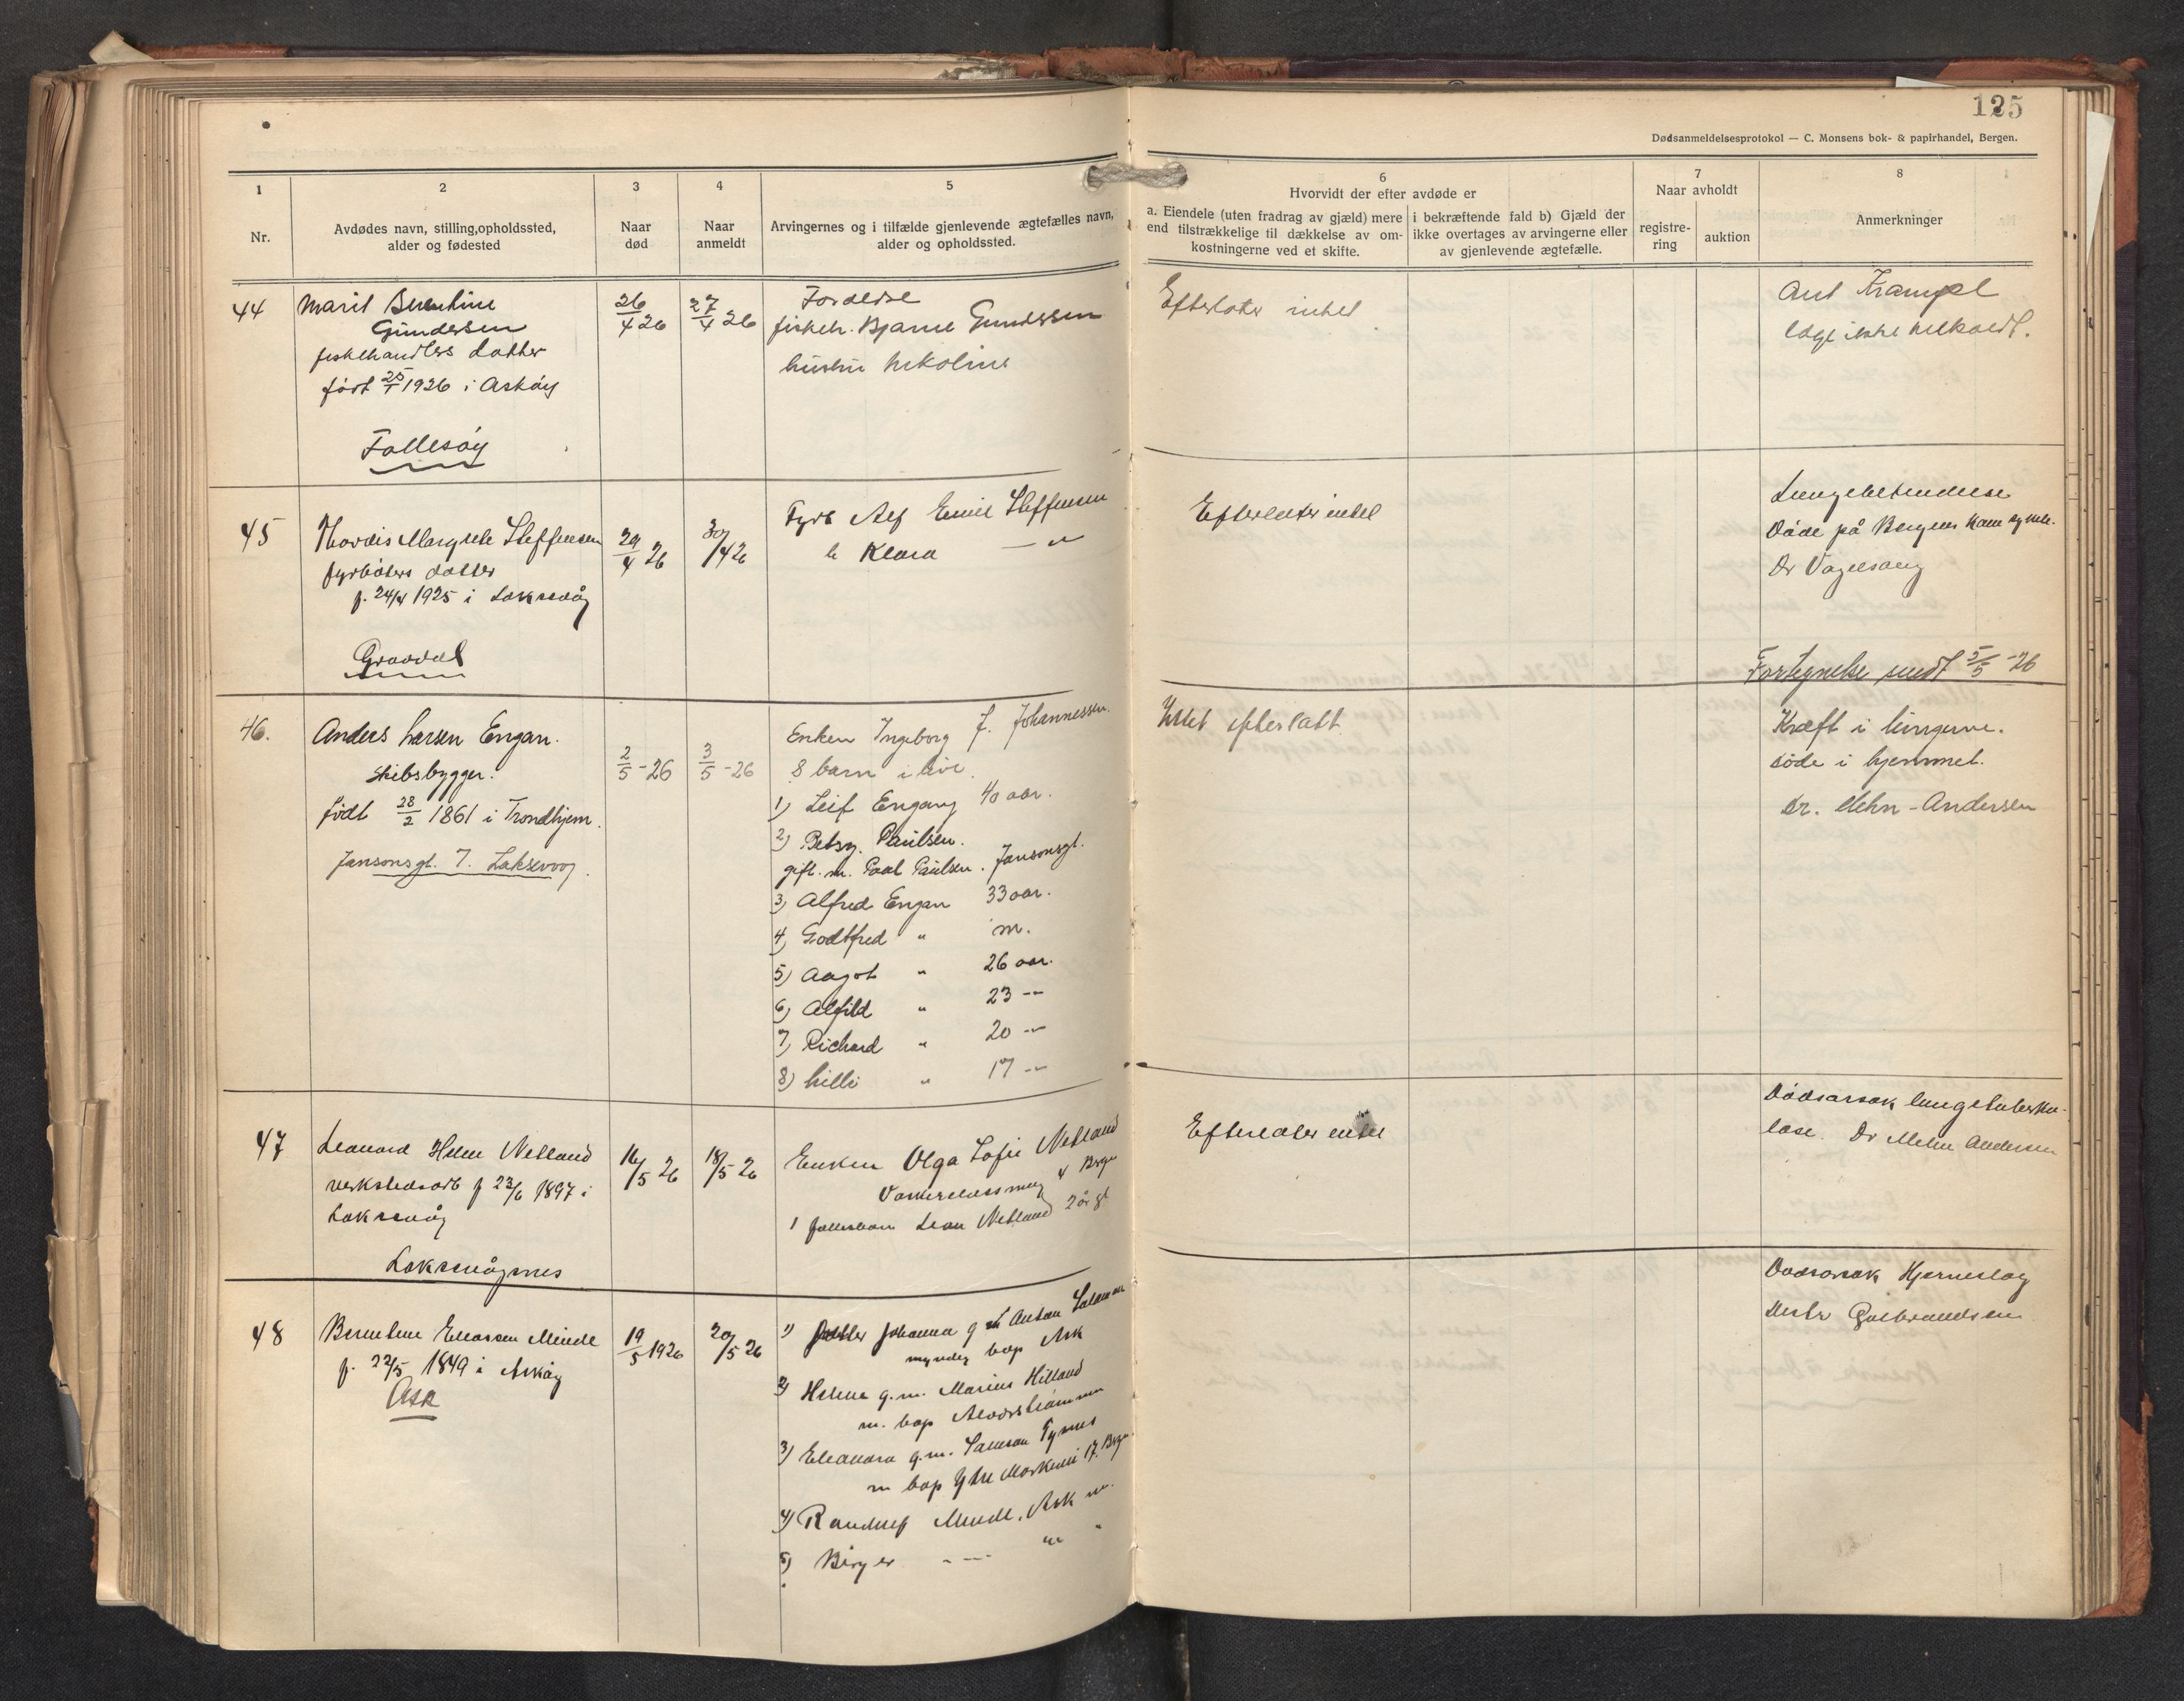 125
Dødsanmeldelsesprotokol — C. Monsens bok- & papirhandel, Bergen.
1
Nr.
2
Avdødes navn, stilling, opholdssted,
alder og fødested
3
Naar
død
4
Naar
anmeldt
5
Arvingernes og i tilfælde gjenlevende ægtefælles navn,
alder og opholdssted.
6
Hvorvidt der efter avdøde er
a. Eiendele (uten fradrag av gjæld) mere
end tilstrækkelige til dækkelse av om-
kostningerne ved et skifte.
i bekræftende fald b) Gjæld der
ikke overtages av arvingerne eller
av gjenlevende ægtefælle.
7
Naar avholdt
registre-
ring
auktion
8
Anmerkninger
44
Marit Berentine
Gundersen
fiskehandlers datter
født 25/1 1926 i Askøy
Follesøy
26/4 26
27/4 26
Forældre
fiskeh. Bjarne Gundersen
hustru Nikoline
Efterlater intet
Ant Krampe
læge ikke tilkaldt.
45
Thordis Margrete Steffensen
fyrbøters datter
f. 24/4 1925 i Laksevåg
Gravdal
29/4 26
30/4 26
Fyrb Alf Emil Steffensen
h Klara — " —
Efterlater intet
Lungebetendelse
Døde på Bergens
Dr Vogelsang
Fortegnelse sendt 5/5 -26
46.
Anders Larsen Engan.
Skibsbygger.
født 28/2 1861 i Trondhjem.
Jansonsgt. 7. Laksevoog.
2/5 -26
3/5 -26
Enken Ingeborg f. Johannessen.
8 barn i live.
1) Leif Engang 40 aar.
2) Betsy. Paulsen.
gift. m. Paal Paulsen. Jansonsgt.
3) Alfred Engan 33 aar.
4) Godtfred " m.
5) Aagot " 26 aar.
6) Alfild " 23 — "
7) Richard " 20 — "
8) Lilli " 17 — "
Intet efterlatt.
Kræft i lungerne.
døde i hjemmet.
Dr. Mehn-Andersen
47
Leonard Helm Netland
verkstedsarb f 23/6 1897 i
Laksevåg
Laksevågsnes
16/5 26
18/5 26
Enken Olga Sofie Netland
4 Brgn
1 fællesbarn Leon Netland 2 år gl
Efterlater intet
Dødsarsak lungetuberku-
lose. Dr Mehn Andersen
48
Berentine Eliassen Minde
f. 22/5 1849 i Askøy
Ask
19/5 1926
20/5 26
1) Johanna g m Anton
myndig bop Ask
2) Helene g.m. Marius Hilland
m. bop Alvørstrømmen
3) Eleonora g.m. Samson Tysnes
m bop Ytre Markevei 17. Brgn.
4) Randulf Minde, Ask m.
5) Birger — " — " "
Dødsarsak Hjerneslag
Distr Gulbrandsen